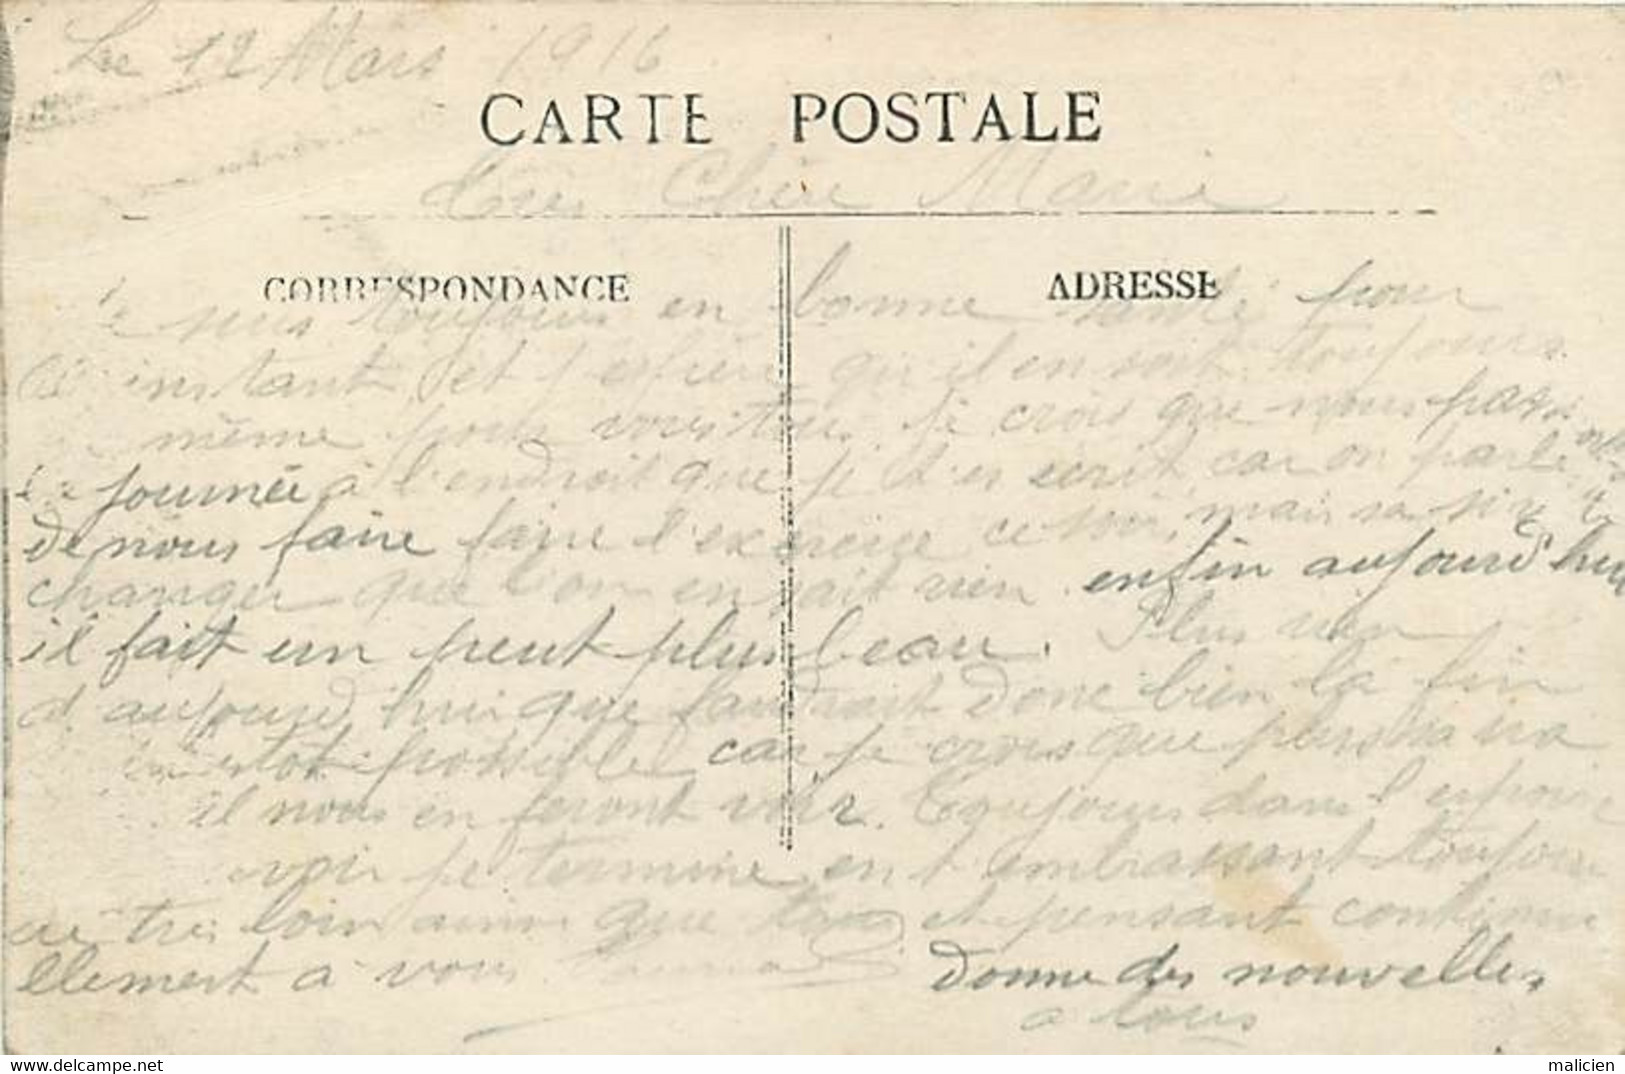 Le 12 Mars 1916
CARTE POSTALE
Très Chère Marie
CORRESPONDANCE ADRESSE
Je suis toujours en bonne santé pour
instant et j'espère qu'il en soit toujours
même pour vous tous. Je crois que nous
journée à l'endroit que je t'es ecrit car on parle
de nous faire faire l'exercice ce soir, mais sa
changer que l'on en sait rien. enfin aujourd'hui
il fait un peut plus beau. Plus rien
d'aujourd'hui que faudrait donc bien la fin
possible car je crois que plus sa va
il nous en feront voir. Toujours dans l'espoire
voir je termine en t'embrassant toujours
de tres loin ainsi que tous et pensant continu
ellement a vous
Donne des nouvelles
a tous
delcampe.net malicien